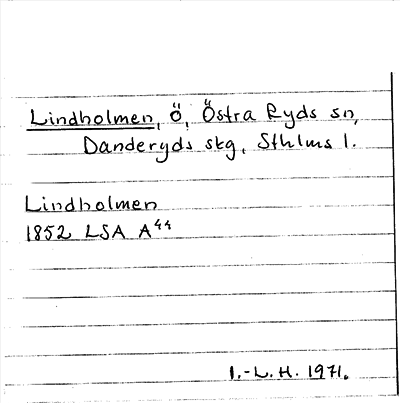 Lindholmen, ö, Östra Ryds sn,
Danderyds skg, Sthlms l.
Lindholmen
1852 LSA A44
I.-L.H. 1971.